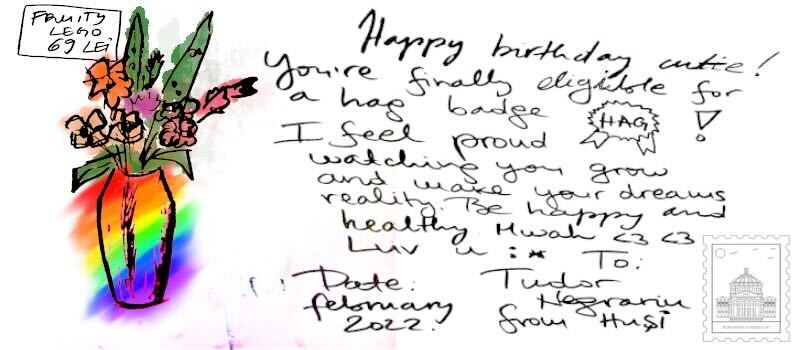 FRUITY
LEGO
69 LEI
Happy birthday cutie!
You're finally eligible for
a hag badge HAG !
I feel proud
watching you grow
and make your dreams
reality. Be happy and
healthy. Mwah <3 <3
Luv u :* To:
Date: Tudor
february Negrariu
2022. from Huși